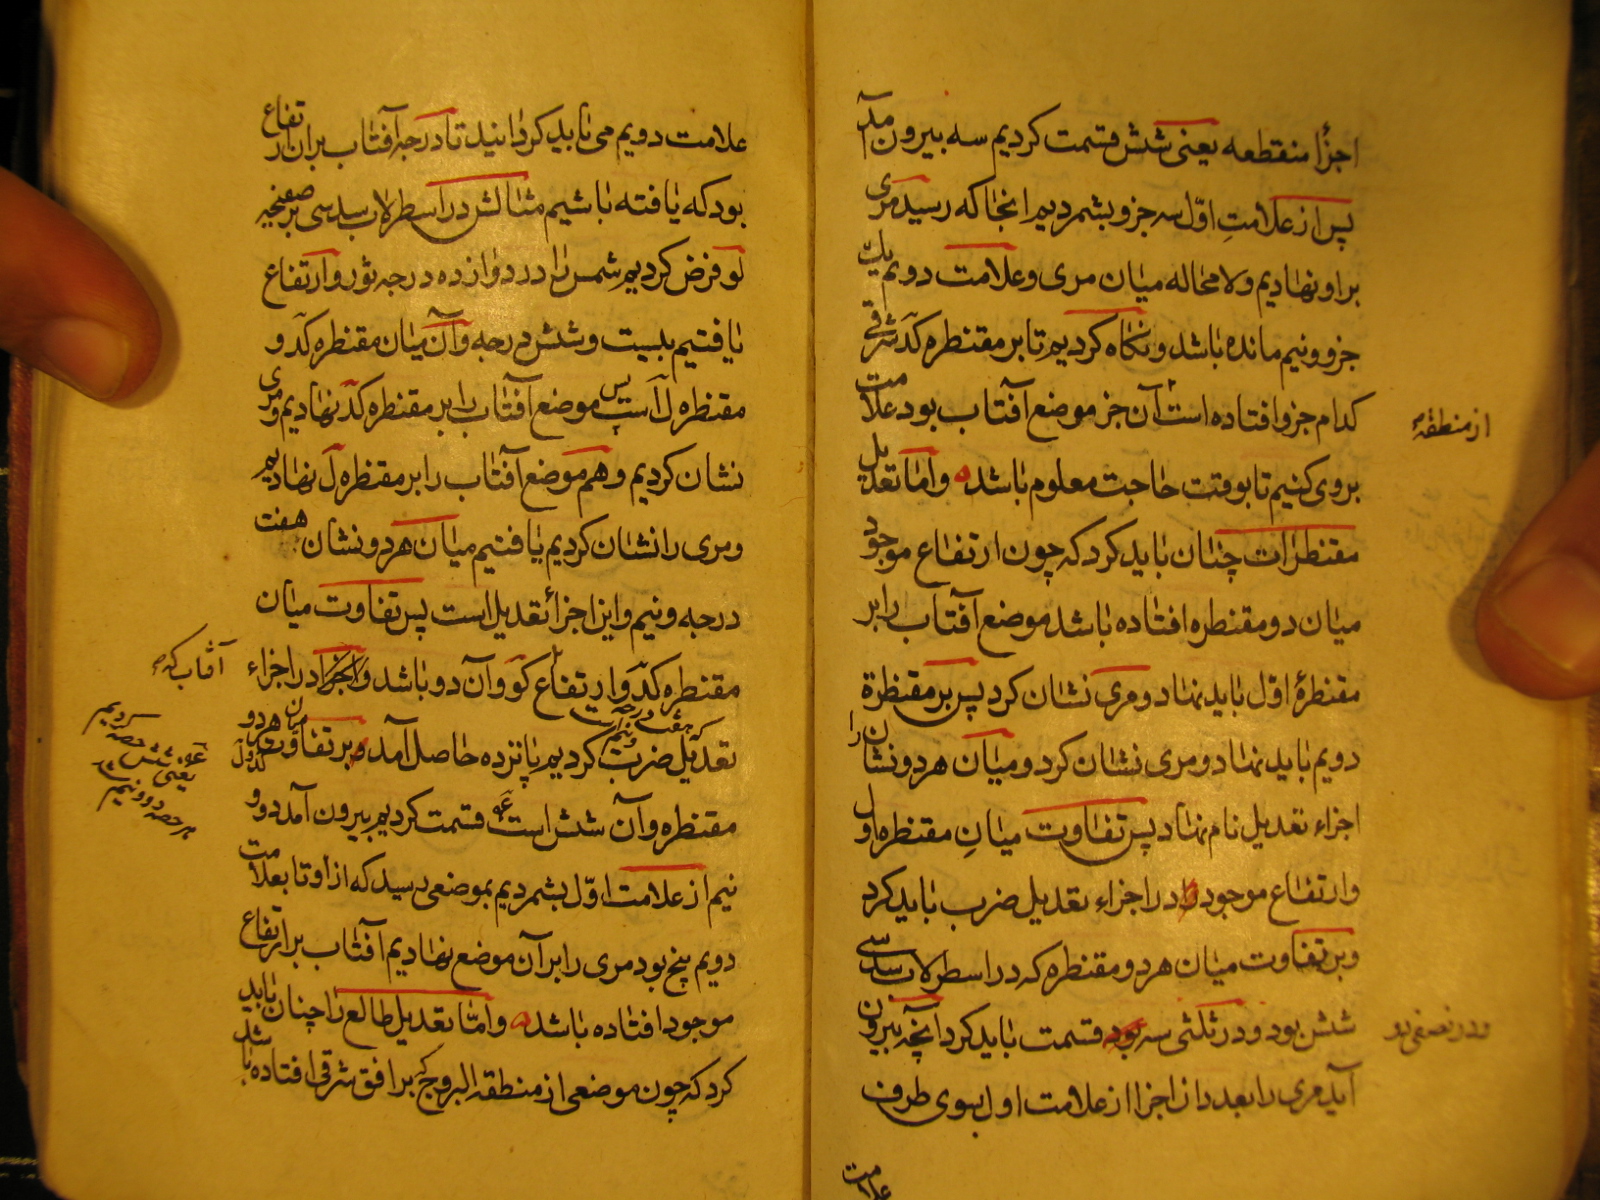 اجزأ منقطعه یعنی شش قسمت کردیم سه بیرون آمد
پس از علامتِ اوّل سه جزو بشمردیم انجا که رسید مری
براو نهادیم ولا محاله میان مری و علامت دویم یک
جزو و نیم مانده باشد و نگاه کردیم تا بر مقنطره کد شرقی
کدام جزو افتاده است آن جز موضع آفتاب بود علامت
از منطقه
بروی کنیم تا بوقت حاجت معلوم باشد و امّا تعدیل
مقنطرات چنان باید کرد که چون ارتفاع موجود
میان دو مقنطره افتاده باشد موضع آفتاب را بر
مقنطرهٔ اوّل باید نهاد و مری نشان کرد پس بر مقنطرهٔ
دویم باید نهاد و مری نشان کرد و میان هر دو نشان را
اجزاء تعدیل نام نهاد پس تفاوت میانِ مقنطره اول
وارتفاع موجود در اجزاء تعدیل ضرب باید کرد
وبر تفاوت میان هر دو مقنطره که در اسطرلاب سدسی
شش بود و در ثلثی سه بود قسمت باید کرد آنچه بیرون
ودر نصفی دو
آید مری را بعدد از اجزا از علامت اول بسوی طرف
علامت
علامت دویم می باید کردانید تا درجه آفتاب بران ارتفاع
بود که یافته باشیم مثالش در اسطرلاب سدسی بر صفیحه
لو فرض کردیم شمس را در دوازده درجه ثور وارتفاع
یافتیم بیست و شش درجه وآن میان مقنطره کد و
مقنطره ل است پس موضع آفتاب را بر مقنطره کد نهادیم و مری
نشان کردیم و هم موضع آفتاب را بر مقنطره ل نهادیم
و مری را نشان کردیم یافتیم میان هر دو نشان هفت
درجه و نیم و این اجزأ تعدیل است پس تفاوت میان
مقنطره کد و ارتفاع کو وآن دو باشد در اجزاء
آفتاب که
تعدیل که هفت درجه و نیم است ضرب کردیم پانزده حاصل آمد بر تفاوت میان هر دو
مقنطره وآن شش است قسمت کردیم بیرون آمد دو و
یعنی شش حصه کردیم
هر حصه دو و نیم شد
نیم از علامت اوّل بشمردیم بموضعی رسید که از او تا بعلامت
دویم پنج بود مری را بر آن موضع نهادیم آفتاب بر ارتفاع
موجود افتاده باشد و امّا تعدیل طالع را چنان باید
کرد که چون موضعی از منطقه البروج که بر افق شرقی افتاده باشد